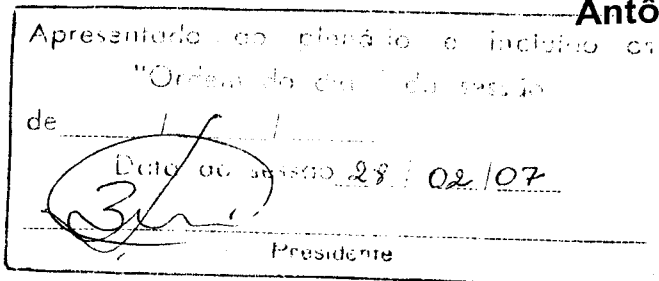 Antô
Apresentado ao plenário e incluído
"Ordem do dia" da sessão
de / /
Data da sessão 28 / 02 / 07
Presidente